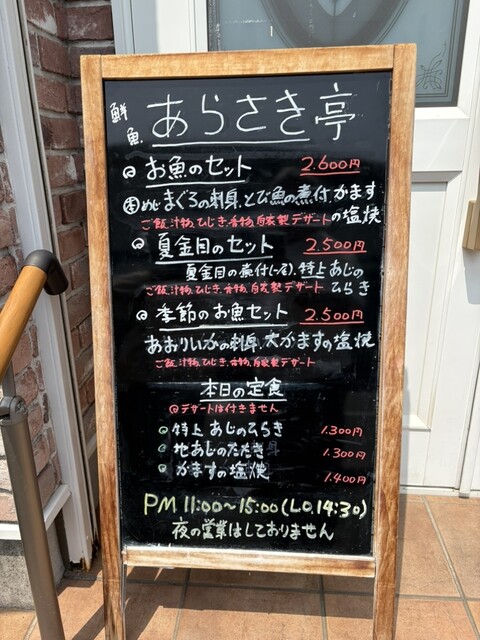 鮮魚 あらさき亭
お魚のセット 2.600円
本めじまぐろの刺身、とび魚の煮付、かますの塩焼
ご飯、汁物、ひじき、香物、自家製デザート
夏金目のセット 2.500円
夏金目の煮付(一尾)、特上あじのひらき
ご飯、汁物、ひじき、香物、自家製デザート
季節のお魚セット 2.500円
あおりいかの刺身、大かますの塩焼
ご飯、汁物、ひじき、香物、自家製デザート
本日の定食
@デザートは付きません
特上あじのひらき 1.300円
地あじのたたき 1.300円
かますの塩焼 1.400円
PM 11:00~15:00(L.O.14:30)
夜の営業はしておりません